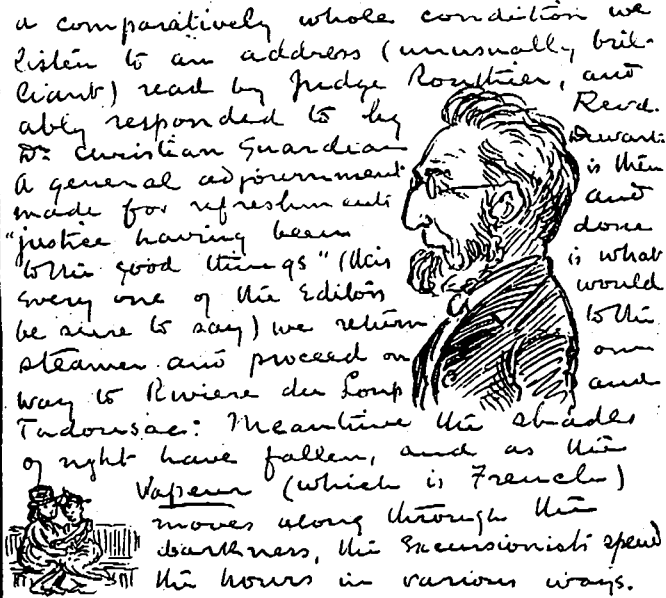 a comparatively whole condition we
listen to an address (unusually bril-
liant) read by Judge Routhier, and
ably responded to by Revd.
Dr. Christian Guardian Dewart.
A general adjournment is then
made for refreshments and
"justice having been done
to the good things" (this is what
every one of the Editors would
be sure to say) we return to the
steamer and proceed on our
way to Riviere du Loup and
Tadousac: Meantime the shades
of night have fallen, and as the
Vapeur (which is French)
moves along through the
darkness, the Excursionists spend
the hours in various ways.